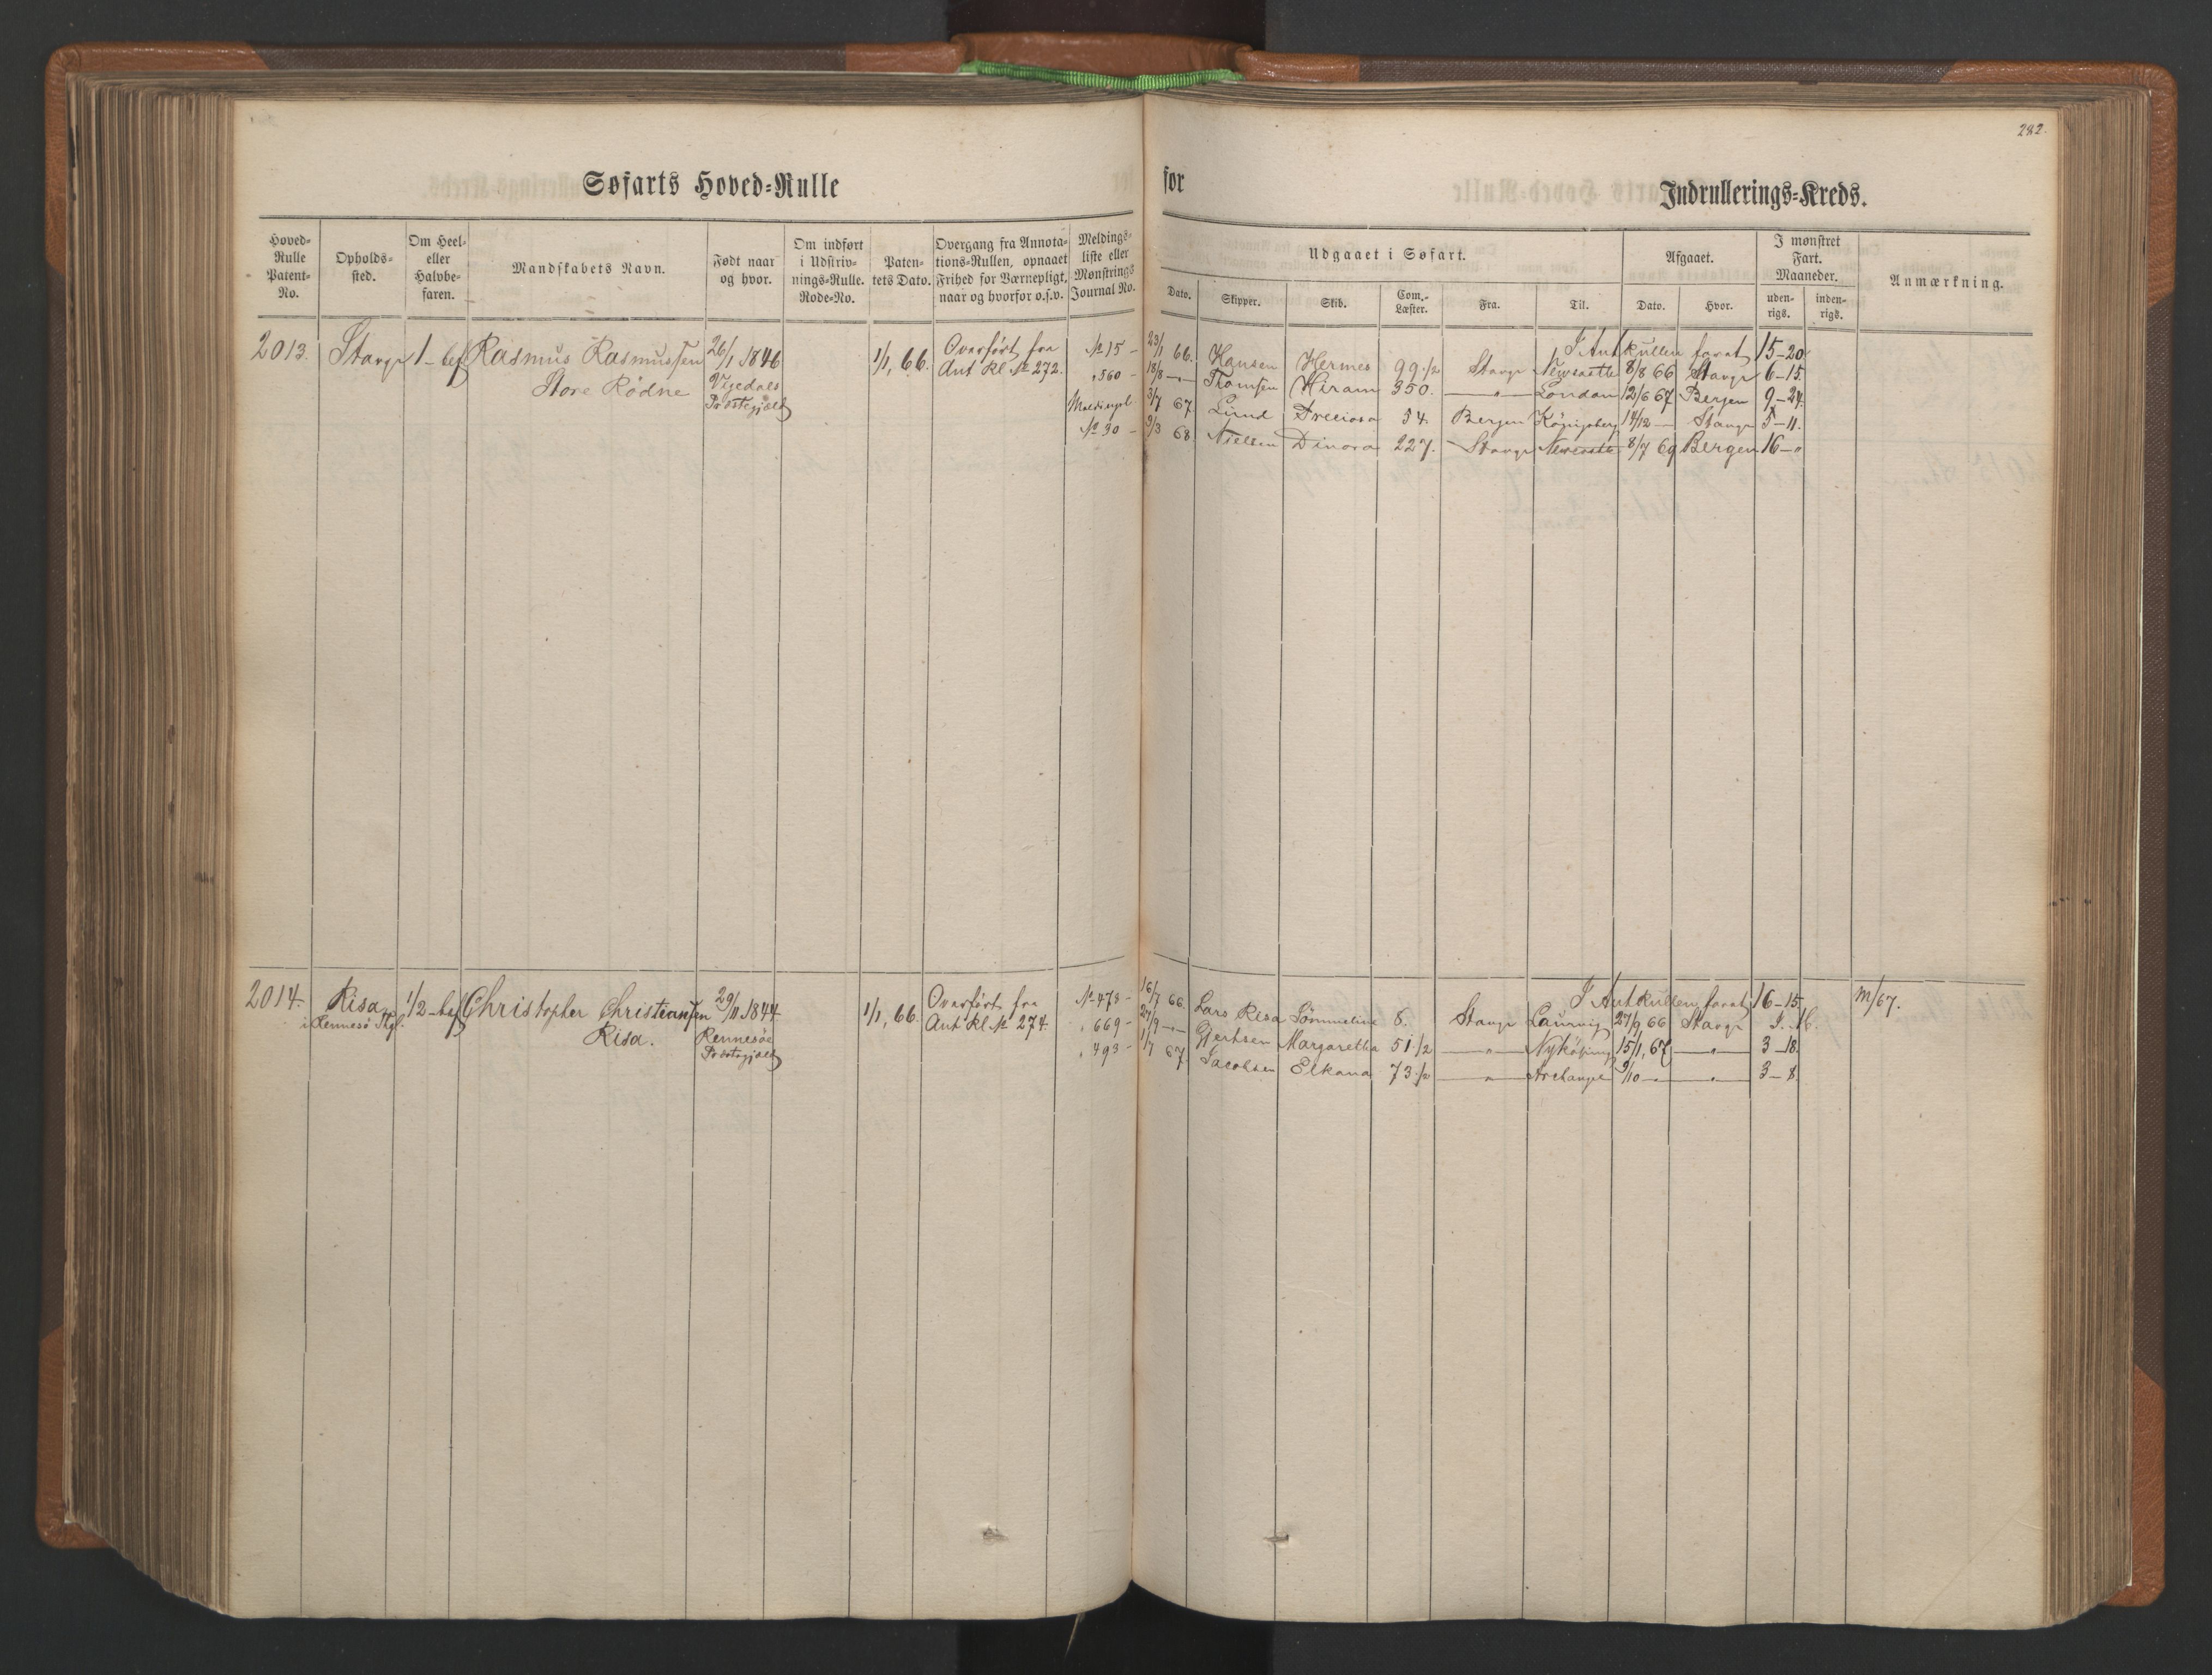 282.
Søfarts Hoved-Rulle for Indrullerings-Kreds.
Hoved-Rulle Patent-No.
Opholds-sted.
Om Heel- eller Halvbe-faren.
Mandskabets Navn.
Født naar og hvor.
Om indført i Udskriv-nings-Rulle. Rode-No.
Paten-tets Dato.
Overgang fra Annota-tions-Rullen, opnaaet Frihed for Værnepligt, naar og hvorfor o.s.v.
Meldings-liste eller Mønstrings Journal No.
Udgaaet i Søfart.
Dato.
Skipper.
Skib.
Com.-Læster.
Fra.
Til.
Afgaaet.
Dato.
Hvor.
I mønstret Fart. Maaneder.
uden-rigs.
inden-rigs.
Anmærkning.
2013. Stavgr 1-bef Rasmus Rasmussen 26/1 1846 1/1, 66. Overført fra No 15 -
Store Rødne Vigedals Ant Rl No 272. " 560 -
Præstegjæld Meldingsl
No 30 -
I Ant Rullen farat 15-20
23/1 66. Hansen Hermes 99 1/2 Stavgr Newcastle 8/8 66 Stavgr 6-15
18/8 -"- Thomsen Hiram 350. -"- London 12/6 67 Bergen 9-24.
3/7 67 Lund Preciosa 54. Bergen Königsberg 14/12 - Stavgr 5-11.
3/3 68. Nielsen Dinora 227. Stavgr Newcastle 8/7 69 Bergen 16-"
2014. Risa 1/2-bef Christopher Christiansen 29/11 1844 1/1, 66. Overført fra No 473 -
i Rennesö Risa. Rennesöe Ant Rl No 274. " 669 -
Præstegjæld " 493 -
I Ant Rullen farat 16-15. M/67.
16/7 66. Lars Risa Sömmeline 8. Stavgr Laurvig 27/9 66 Stavgr
27/9 -"- Gjertsen Margaretha 51 1/2 -"- Nyköping 15/1, 67 -"- 3-18.
1/7 67. Jacobsen Elkana 73 1/2 -"- Archangel 9/10 -"- -"- 3-8.